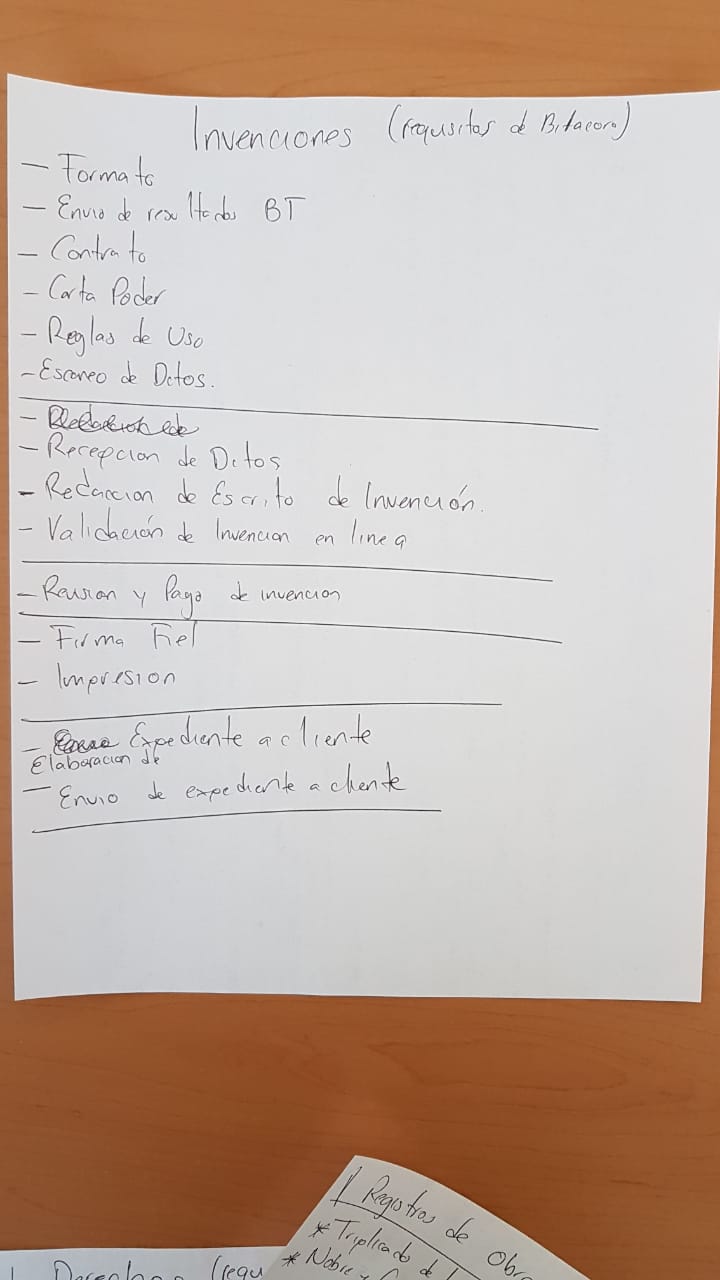 Invenciones (requisitos de Bitacora)
- Formato
- Envio de resultados BT
- Contrato
- Carta Poder
- Reglas de Uso
- Escaneo de Dctos.
- Recepcion de Dctos
- Redaccion de Escrito de Invención.
- Validación de Invencion en linea
- Revision y Pago de invencion
- Firma Fiel
- Impresion
- Expediente a cliente
Elaboracion de
- Envio de expediente a cliente
Registros de Obr
* Triplicado de
* Nobre
(requ